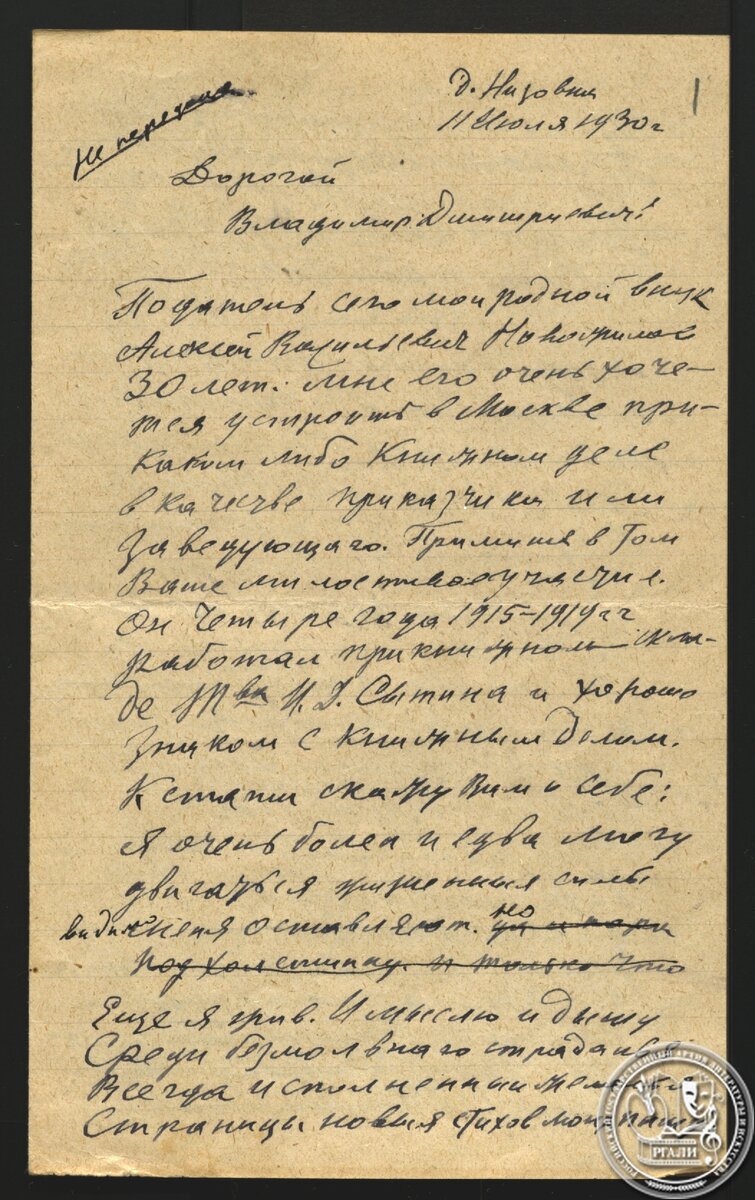 не передана
1
д. Низовка
11 Июля 1930 г
Дорогой
Владимир Дмитриевич!
Податель сего мой родной внук
Алексей Васильевич Новожилов
30 лет. мне его очень хоче-
тся устроить в Москве при-
каком либо Книжном деле
в качестве приказчика или
заведующаго. Примите в том
Ваше милостивое участие.
Он Четыре года 1915-1919 гг
работал при книжном скла-
де Т ва И. Д. Сытина и хорошо
знаком с книжным Делом.
Кстати скажу Вам о себе:
я очень болен и едва могу
двигаться жизненныя силы
видимо меня оставляют. но
под холстинку. и только что
Еще я жив. И мыслю и дышу
Среди безмолвнаго страданья
Всегда исполненный
Страницы новыя Стихов моих пишу
РГАЛИ
РОССИЙСКИЙ ГОСУДАРСТВЕННЫЙ АРХИВ ЛИТЕРАТУРЫ И ИСКУССТВА